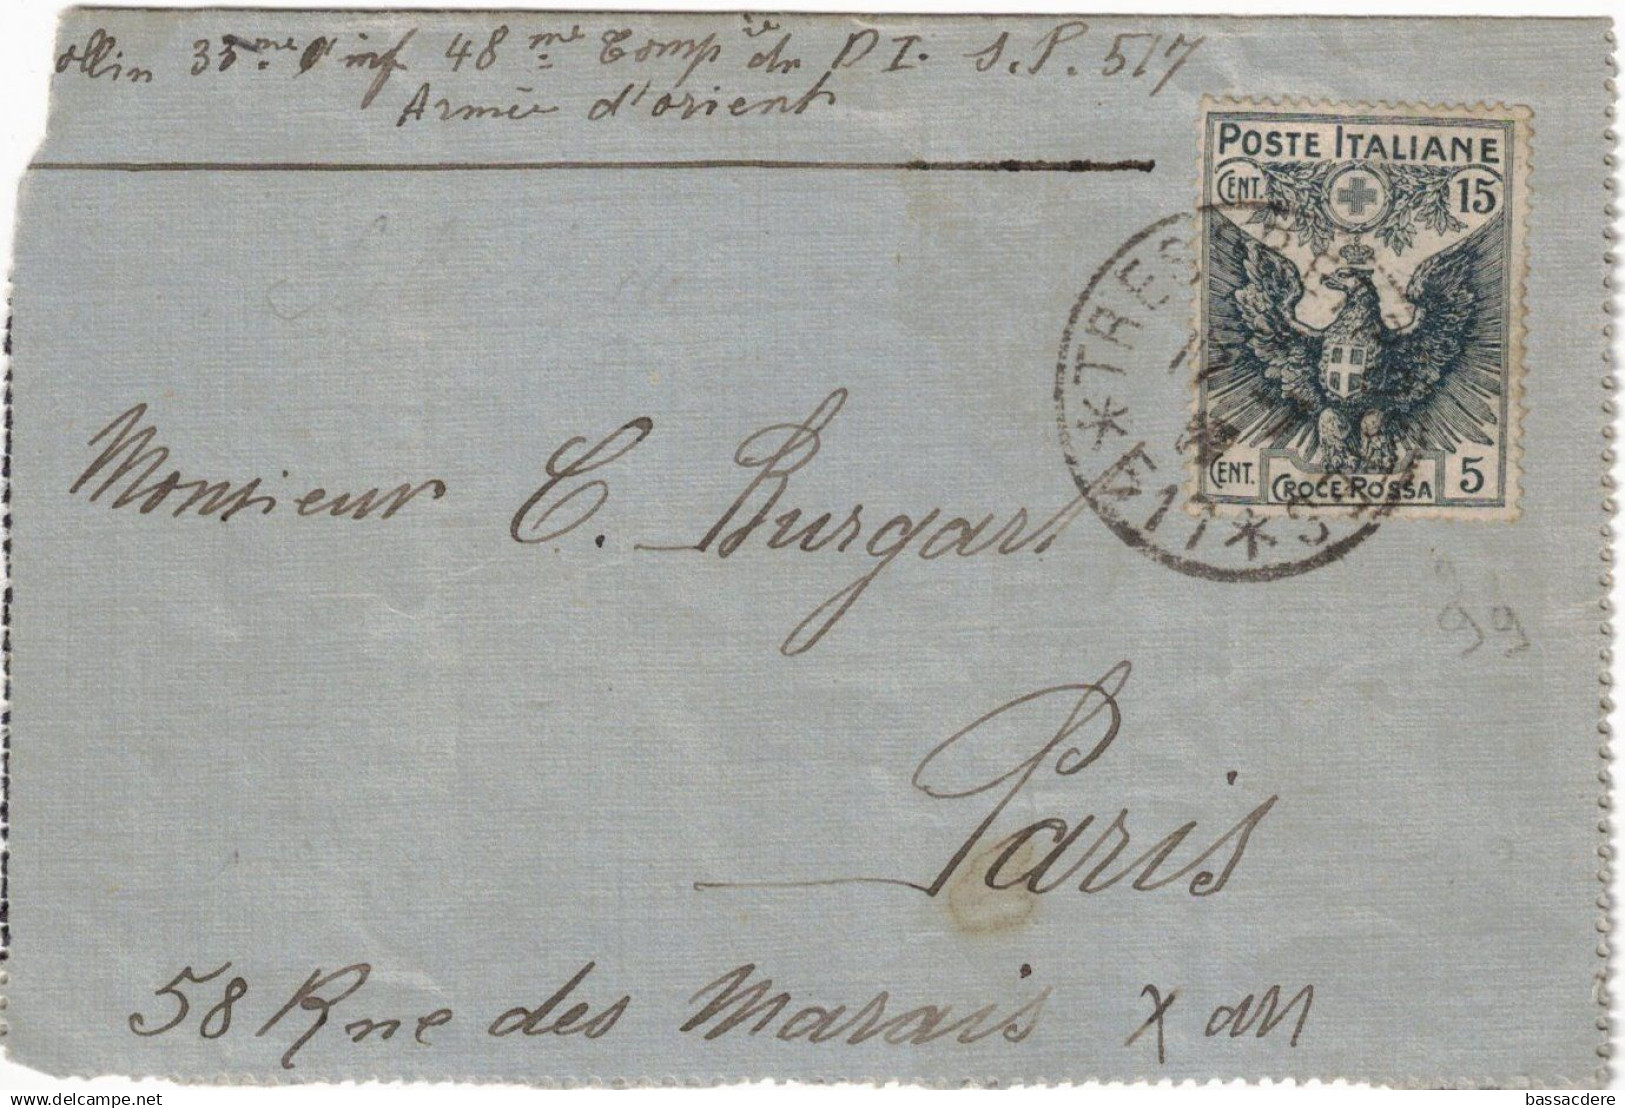 ollin 35me d'inf 48me Compie du D I. S.P. 517
Armée d'orient
POSTE ITALIANE
CENT. 15
CENT. 5
CROCE ROSSA
*TRESOR
517*
Monsieur C. Burgart
Paris
58 Rue des Marais X arr
99
delcampe.net
bassacdere